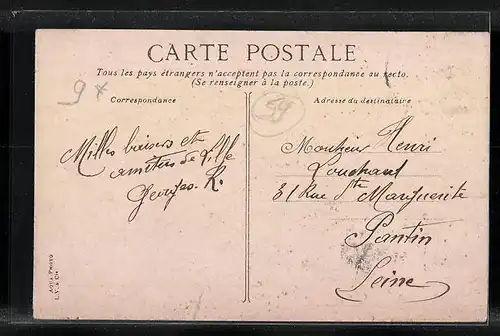 CARTE POSTALE
Tous les pays étrangers n'acceptent pas la correspondance au recto.
(Se renseigner à la poste.)
9 *
59
Correspondance
Adresse du destinataire
Milles baisers et
amitiés de Lille
Georges. R.
Monsieur Henri
Louchard
31 Rue Ste Marguerite
Pantin
Seine
AQUA PHOTO
L. V. & Cie